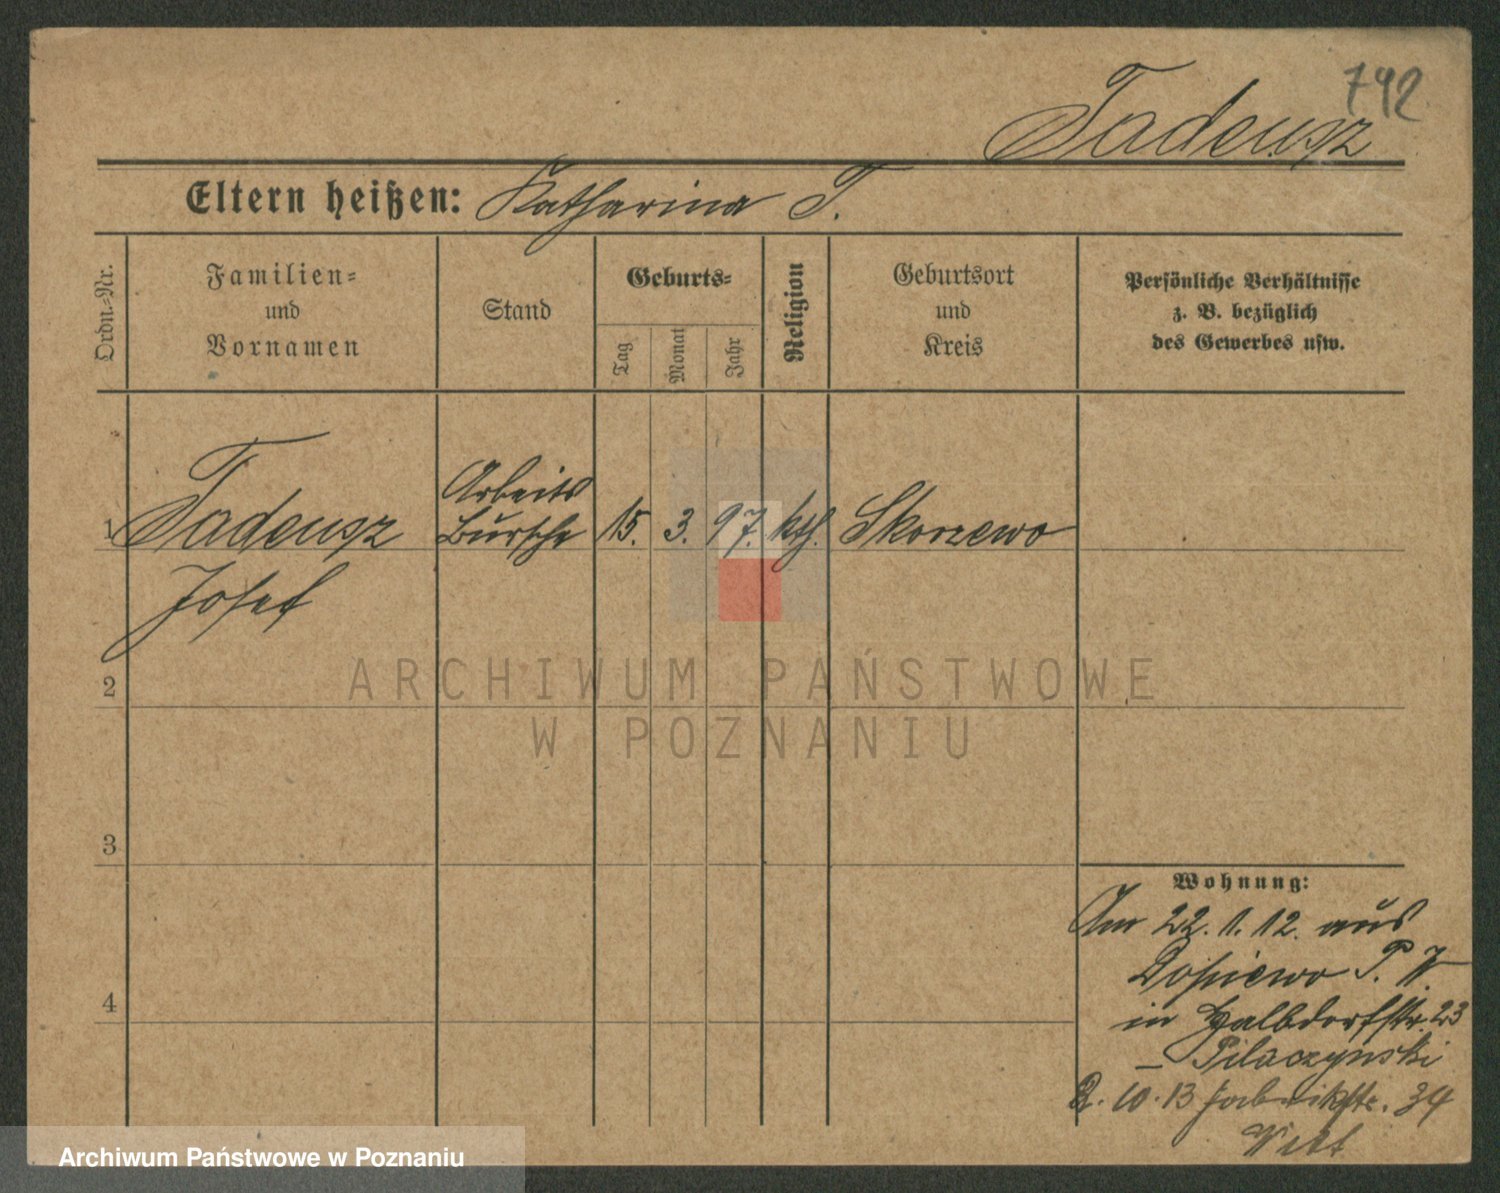 742
Tadeusz
Eltern heißen: Katharina T.
Ordn.-Nr.
Familien-
und
Vornamen
Stand
Geburts-
Tag
Monat
Jahr
Religion
Geburtsort
und
Kreis
Persönliche Verhältnisse
z. B. bezüglich
des Gewerbes usw.
1 Tadeusz Arbeits Bursche 15. 3. 97. kth. Skorzewo
Josef
2
3
4
ARCHIWUM PAŃSTWOWE
W POZNANIU
Wohnung:
Am 22. 1. 12. aus
Dopiewo P. W.
in Halbdorfstr. 23
– Pilaczynski
2. 10. 13 Fabrikstr. 34
Archiwum Państwowe w Poznaniu